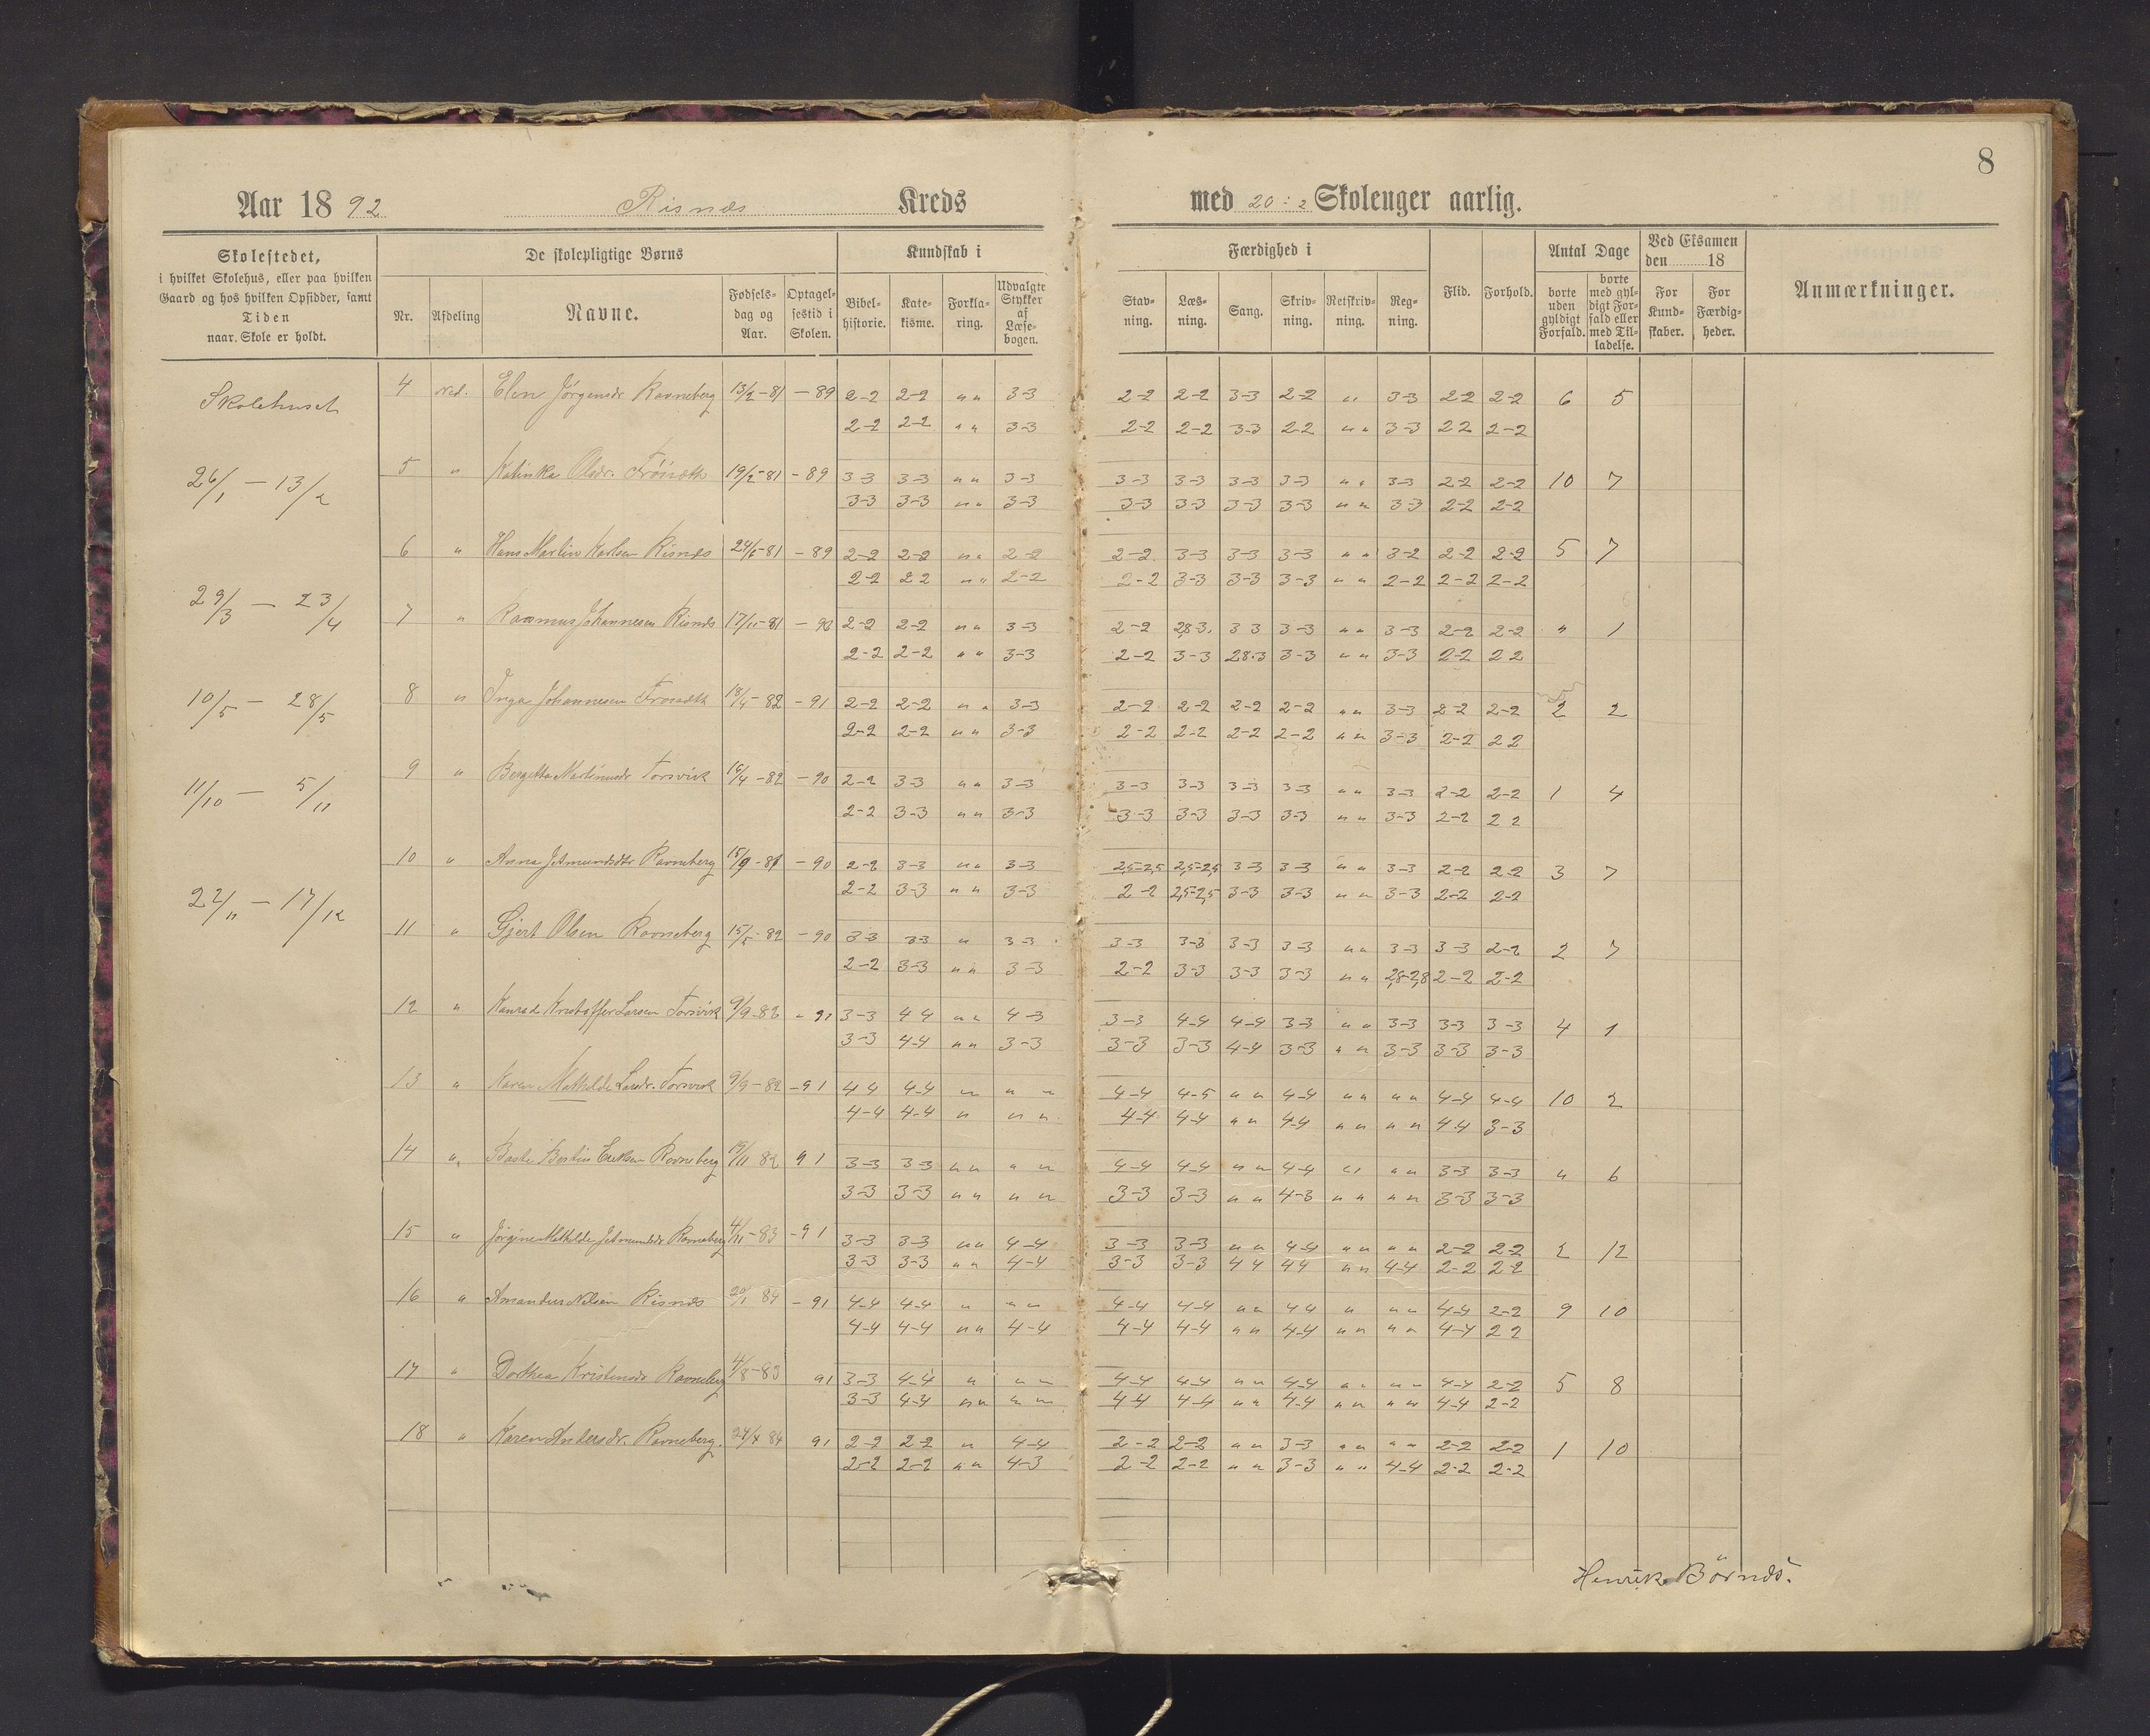 8
Aar 1892 Risnæs Kreds med 20:2 Skolenger aarlig.
Skolestedet, i hvilket Skolehus, eller paa hvilken Gaard og hos hvilken Opsidder, samt Tiden naar Skole er holdt.
De skolepligtige Børns
Nr. Afdeling Navne. Fødselsdag og Aar. Optagelsestid i Skolen.
Kundskab i
Bibelhistorie. Katekisme. Forklaring. Udvalgte Stykker af Læsebogen.
Færdighed i
Stavning. Læsning. Sang. Skrivning. Retskrivning. Regning.
Flid. Forhold.
Antal Dage
borte uden gyldigt Forfald. borte med gyldigt Forfald eller med Tilladelse.
Ved Eksamen den 18
For Kundskaber. For Færdigheder.
Anmærkninger.
Skolehuset
26/1 – 13/2
29/3 – 23/4
10/5 – 28/5
11/10 – 5/11
22/11 – 17/12
4 Ned. Elen Jørgensdr Ravneberg 13/2-81 -89 2-2 2-2 " " 3-3 2-2 2-2 3-3 2-2 " 3-3 2-2 2-2 6 5
2-2 2-2 " " 3-3 2-2 2-2 3-3 2-2 " " 3-3 2 2 2-2
5 " Katinka Olsdr. 19/2-81 -89 3-3 3-3 " " 3-3 3-3 3-3 3-3 3-3 " " 3-3 2-2 2-2 10 7
3-3 3-3 " " 3-3 3-3 3-3 3-3 3-3 " " 3-3 2-2 2-2
6 " Hans Martin Karlsen Risnæs 24/6-81 -89 2-2 2-2 " " 2-2 2-2 3-3 3-3 3-3 " " 3-2 2-2 2-2 5 7
2-2 2 2 " " 2-2 2-2 3-3 3-3 3-3 " " 2-2 2-2 2-2
7 " Rasmus Johannesen Risnæs 17/11-81 -90 2-2 2-2 " " 3-3 2-2 2,8-3. 3 3 3-3 " " 3-3 2-2 2-2 " 1
2-2 2-2 " " 3-3 2-2 3-3 2,8-3 3-3 " " 3-3 2-2 2 2
8 " Inga Johannesen 18/4-82 -91 2-2 2-2 " " 3-3 2-2 2-2 2-2 2-2 " " 3-3 2-2 2-2 2 2
2-2 2-2 " " 3-3 2-2 2-2 2-2 2-2 " " 3-3 2-2 2 2
9 " Bergetta Martinusdr Torsvik 16/4-82 -90 2-2 3-3 " " 3-3 3-3 3-3 3-3 3-3 " " 3-3 2-2 2-2 1 4
2-2 3-3 " " 3-3 3-3 3-3 3-3 3-3 " " 3-3 2-2 2 2
10 " Anna Jetmundsdtr Ravneberg 15/9-81 -90 2-2 3-3 " " 3-3 2,5-2,5 2,5-2,5 3-3 3-3 " " 3-3 2-2 2-2 3 7
2-2 3-3 " " 3-3 2-2 2,5-2,5 3-3 3-3 " " 3-3 2-2 2-2
11 " Gjert Olsen Ravneberg 15/5-82 -90 3-3 3-3 " 3-3 3-3 3-3 3-3 3-3 " " 3-3 3-3 2-2 2 7
2-2 3-3 " " 3-3 2-2 3-3 3-3 3-3 " " 2,8-2,8 2-2 2-2
12 " Konrad Kristoffer Larsen Torsvik 9/9-82 -91 3-3 4 4 " " 4-3 3-3 4-4 4-4 3-3 " " 3-3 3-3 3-3 4 1
3-3 4-4 " " 3-3 3-3 3-3 4-4 3-3 " " 3-3 3-3 3-3
13 " Karen Mathilde Larsdr. Torsvik 9/9-82 -91 4 4 4-4 " " " 4-4 4-5 " " 4-4 " " " " 4-4 4-4 10 2
4-4 4-4 " " " 4-4 4-4 " " 4-4 " " " " 4-4 3-3
14 " Eriksen Ravneberg 19/11 82 91 3-3 3-3 " " " " 4-4 4-4 " " 4-4 " " " 3-3 3-3 " 6
3-3 3-3 " " " " 3-3 3-3 " " 4-3 " " " " 3-3 3-3
15 " Jørgine Mathilde Jetmundsdr Ravneberg 4/11-83 -91 3-3 3-3 " " 4-4 3-3 3-3 " " 4-4 " " " " 2-2 2-2 2 12
3-3 3-3 " " 4-4 3-3 3-3 4 4 4 4 " " 4-4 2-2 2 2
16 " Amandus Nilsen Risnæs 20/1 84 -91 4-4 4-4 " " " 4-4 4-4 " " 4 4 " " " 4-4 2-2 9 10
4-4 4-4 " " 4-4 4-4 4-4 " " 4-4 " " " " 4-4 2 2
17 " Dorthea Kristensdr Ravneberg 4/8-83 91 3-3 4-4 " " " 4-4 4-4 " " 4-4 " " " " 4-4 2-2 5 8
3-3 4-4 " " " " 4 4 4-4 " " 4-4 " " " " 4-4 2-2
18 " Karen Andersdr. Ravneberg. 24/4 84 91 2-2 2-2 " 4-4 2-2 2-2 " " 3-3 " " " " 2-2 2-2 1 10
2-2 2-2 " " 4-3 2-2 2-2 " " 3-3 " " 4-4 2-2 2-2
Henrik Børnæs.